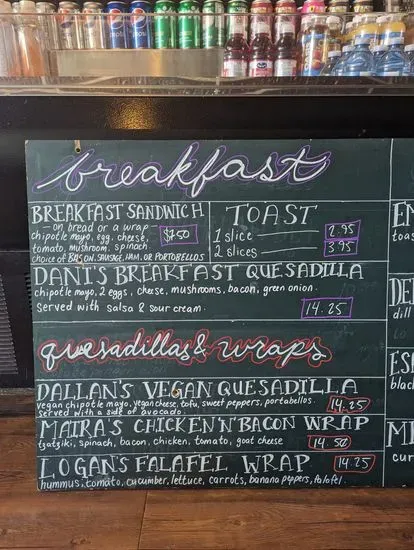 pepsi
pepsi
breakfast
BREAKFAST SANDWICH
— on bread or a wrap —
chipotle mayo, egg, cheese,
tomato, mushroom, spinach.
choice of BACON, SAUSAGE, HAM, OR PORTOBELLOS
$7.50
TOAST
1 slice 2.95
2 slices 3.95
DANI'S BREAKFAST QUESADILLA
chipotle mayo, 2 eggs, cheese, mushrooms, bacon, green onion.
served with salsa & sour cream.
14.25
quesadillas & wraps
DALLAN'S VEGAN QUESADILLA
vegan chipotle mayo, vegan cheese, tofu, sweet peppers, portabellos.
served with a side of avocado.
14.25
MAIRA'S CHICKEN 'N' BACON WRAP
tzatziki, spinach, bacon, chicken, tomato, goat cheese
14.50
LOGAN'S FALAFEL WRAP 14.25
hummus, tomato, cucumber, lettuce, carrots, banana peppers, falafel.
toas
dill
black
cur